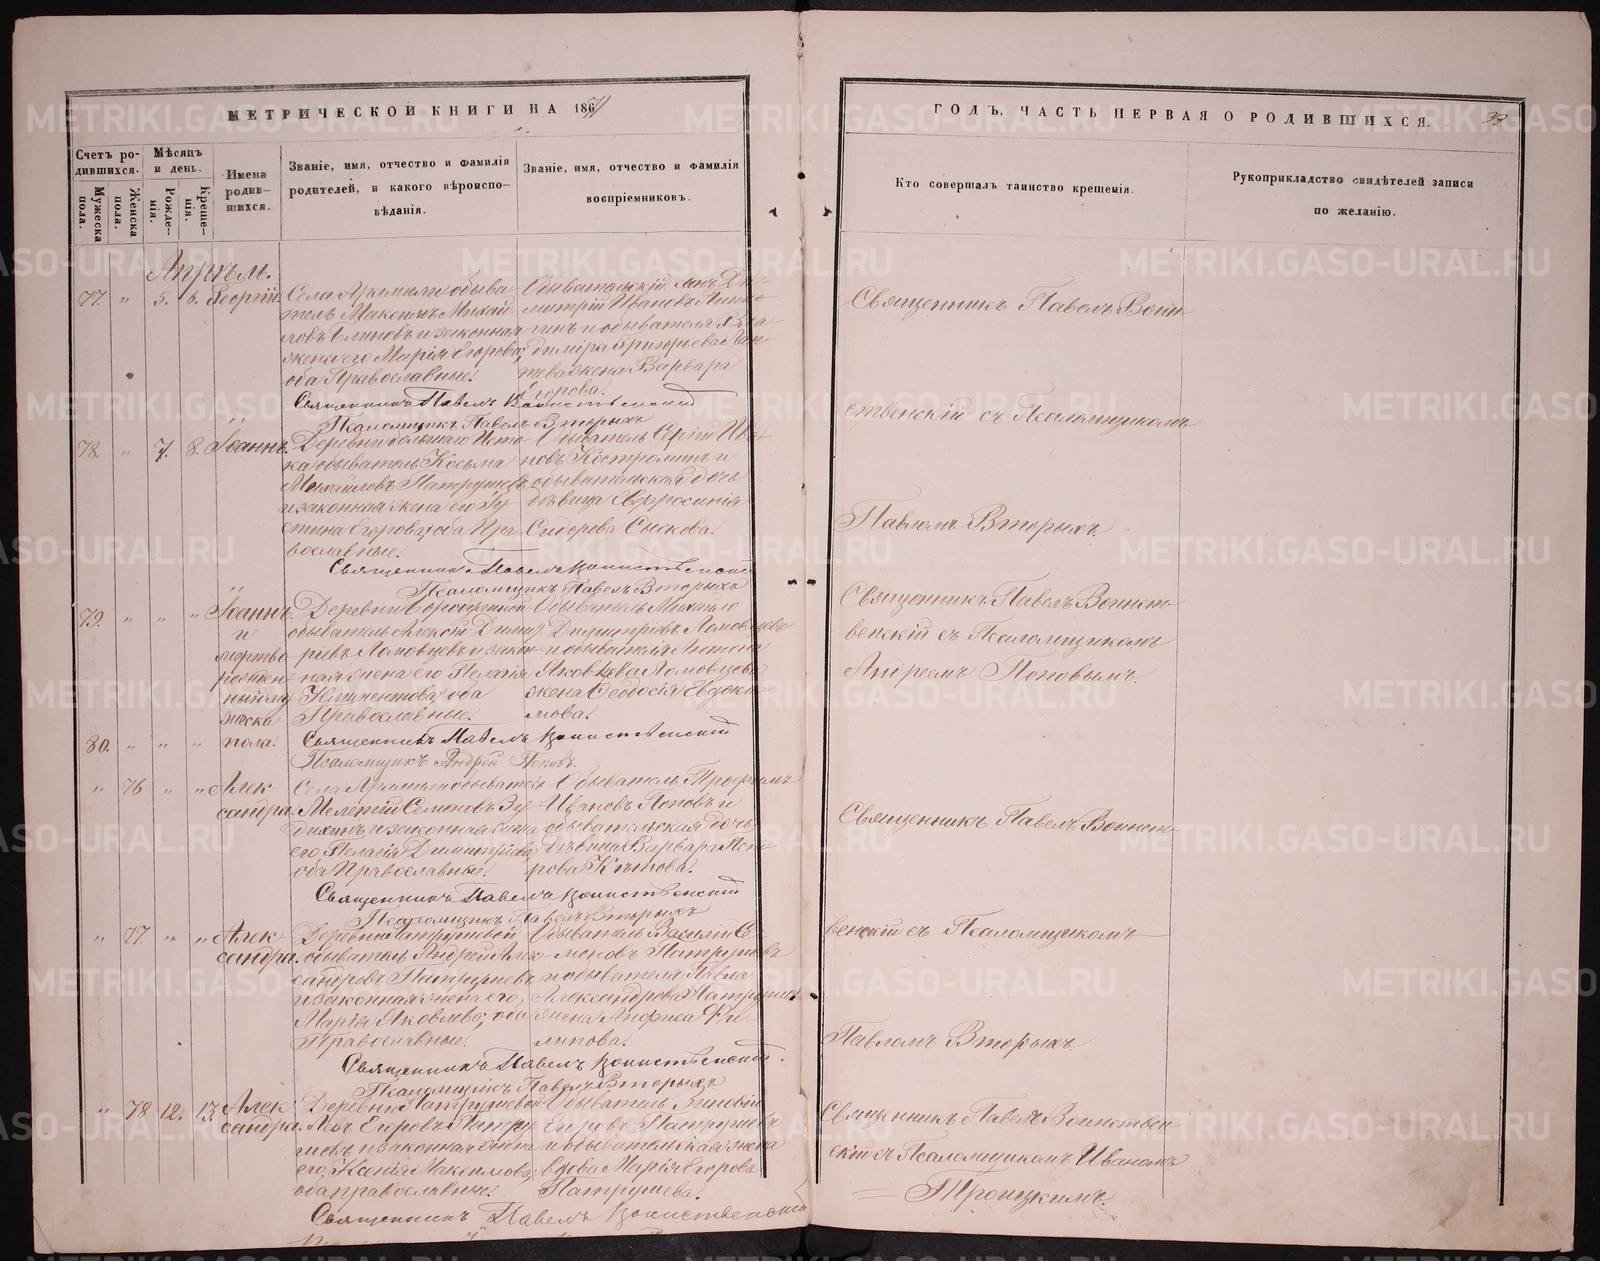 МЕТРИЧЕСКОЙ КНИГИ НА 1871
ГОДЪ, ЧАСТЬ ПЕРВАЯ О РОДИВШИХСЯ.
Счетъ ро-
дившихся.
Мѣсяцъ
и день.
Мужеска
пола.
Женска
пола.
Рожде-
нія.
Креще-
нія.
Имена
родив-
шихся.
Званіе, имя, отчество и фамилія
родителей, и какого вѣроиспо-
вѣданія.
Званіе, имя, отчество и фамилія
воспріемниковъ.
Кто совершалъ таинство крещенія.
Рукоприкладство свидѣтелей записи
по желанію.
Апрѣль.
77. " 5. 6. Георгій.
Села Арамили обыва
тель Максимъ Михай
ловъ и законная
жена его Марія Егорова,
оба Православные.
Обывательскій сынъ Ди-
митрій Ивановъ
и обывателя
Григорьева
жена Варвара
Егорова.
Священникъ Павелъ Воинственскій
Псаломщикъ Павелъ Вторыхъ
Священникъ Павелъ Воин
ственскій съ Псаломщикомъ
Павломъ Вторыхъ.
78. " 7. 8. Іоаннъ.
Деревни большаго Исто-
ка обыватель Косьма
Михайловъ Патрушевъ
и законная жена его Ху
стина Егорова, оба Пра
вославные.
Обыватель Сергій Ива-
новъ Костроминъ и
обывательская дочь
дѣвица Евфросинія
Сидорова Сыскова.
Священникъ Павелъ Воинственскій
Псаломщикъ Павелъ Вторыхъ
79. " " " Іоаннъ
и
мертво
рожден
ный му
жеска
80. " " " пола.
Деревни
обыватель Алексѣй Димит
ріевъ Ломовцевъ и закон
ная жена его Пелагія
Климентова, оба
Православные.
Обыватель Михайло
Димитріевъ Ломовцевъ
и обывателя Антона
Яковлева Ломовцева
жена Ѳеодосія Евдоки
мова.
Священникъ Павелъ Воинственскій
Псаломщикъ Андрей Поповъ.
Священникъ Павелъ Воинст-
венскій съ Псаломщикомъ
Андреемъ Поповымъ.
" 76 " " Алек
сандра.
Села Арамили обыватель
Мелетій Семеновъ
и законная жена
его Пелагія Димитріева
оба Православные.
Обыватель Трофимъ
Ивановъ Поповъ и
обывательская дочь
дѣвица Варвара
Кѣтова.
Священникъ Павелъ Воинственскій
Псаломщикъ Павелъ Вторыхъ
Священникъ Павелъ Воинст-
венскій съ Псаломщикомъ
Павломъ Вторыхъ.
" 77 " " Алек
сандра.
Деревни Патрушевой
обыватель Андрей Алек-
сандровъ Патрушевъ
и законная жена его,
Марія Яковлева; оба
Православные.
Обыватель Василій Се-
меновъ Патрушевъ
и обывателя Павла
Александрова Патрушева
жена Анфиса Фи-
липова.
Священникъ Павелъ Воинственскій.
Псаломщикъ Павелъ Вторыхъ
" 78 12. 13. Алек
сандра.
Деревни Патрушевой
Егоровъ Патру
шевъ и законная жена
его, Ксенія Максимова;
оба православные.
Обыватель Зиновій
Егоровъ Патрушевъ
и обывательская жена
вдова Марія Егорова
Патрушева.
Священникъ Павелъ Воинственскій
Священникъ Павелъ Воинствен
скій съ Псаломщикомъ Иваномъ
Троицкимъ.
METRIKI.GASO-URAL.RU